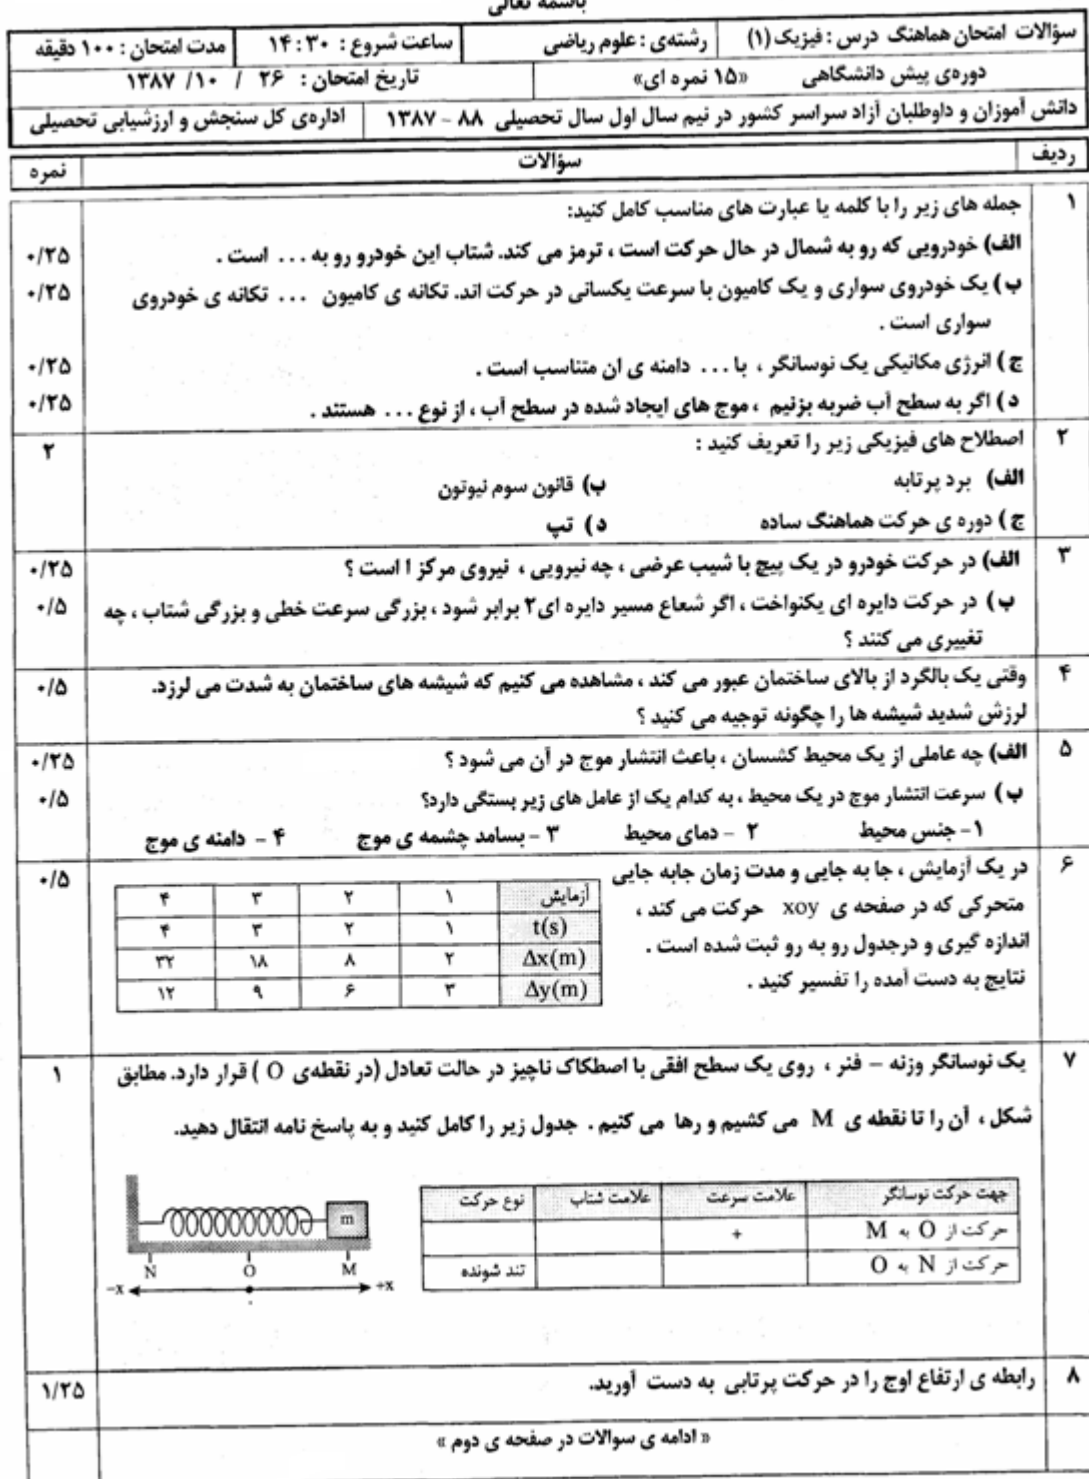 باسمه تعالی
سؤالات امتحان هماهنگ درس : فیزیک (۱) رشته‌ی : علوم ریاضی ساعت شروع : ۱۴:۳۰ مدت امتحان : ۱۰۰ دقیقه
دوره‌ی پیش دانشگاهی «۱۵ نمره ای» تاریخ امتحان : ۲۶ / ۱۰/ ۱۳۸۷
دانش آموزان و داوطلبان آزاد سراسر کشور در نیم سال اول سال تحصیلی ۸۸ - ۱۳۸۷ اداره‌ی کل سنجش و ارزشیابی تحصیلی
ردیف سؤالات نمره
۱ جمله های زیر را با کلمه یا عبارت های مناسب کامل کنید:
الف) خودرویی که رو به شمال در حال حرکت است ، ترمز می کند. شتاب این خودرو رو به ... است . ۰/۲۵
ب) یک خودروی سواری و یک کامیون با سرعت یکسانی در حرکت اند. تکانه ی کامیون ... تکانه ی خودروی ۰/۲۵
سواری است .
ج) انرژی مکانیکی یک نوسانگر ، با ... دامنه ی ان متناسب است . ۰/۲۵
د) اگر به سطح آب ضربه بزنیم ، موج های ایجاد شده در سطح آب ، از نوع ... هستند . ۰/۲۵
۲ اصطلاح های فیزیکی زیر را تعریف کنید : ۲
الف) برد پرتابه ب) قانون سوم نیوتون
ج) دوره ی حرکت هماهنگ ساده د) تپ
۳ الف) در حرکت خودرو در یک پیچ با شیب عرضی ، چه نیرویی ، نیروی مرکز ا است ؟ ۰/۲۵
ب) در حرکت دایره ای یکنواخت ، اگر شعاع مسیر دایره ای۲ برابر شود ، بزرگی سرعت خطی و بزرگی شتاب ، چه ۰/۵
تغییری می کنند ؟
۴ وقتی یک بالگرد از بالای ساختمان عبور می کند ، مشاهده می کنیم که شیشه های ساختمان به شدت می لرزد. ۰/۵
لرزش شدید شیشه ها را چگونه توجیه می کنید ؟
۵ الف) چه عاملی از یک محیط کشسان ، باعث انتشار موج در آن می شود ؟ ۰/۲۵
ب) سرعت انتشار موج در یک محیط ، به کدام یک از عامل های زیر بستگی دارد؟ ۰/۵
۱- جنس محیط ۲ - دمای محیط ۳ - بسامد چشمه ی موج ۴ - دامنه ی موج
۶ در یک آزمایش ، جا به جایی و مدت زمان جابه جایی ۰/۵
متحرکی که در صفحه ی xoy حرکت می کند ،
اندازه گیری و درجدول رو به رو ثبت شده است .
نتایج به دست آمده را تفسیر کنید .
آزمایش ۱ ۲ ۳ ۴
t(s) ۱ ۲ ۳ ۴
Δx(m) ۲ ۸ ۱۸ ۳۲
Δy(m) ۳ ۶ ۹ ۱۲
۷ یک نوسانگر وزنه – فنر ، روی یک سطح افقی با اصطکاک ناچیز در حالت تعادل (در نقطه‌ی O ) قرار دارد. مطابق ۱
شکل ، آن را تا نقطه ی M می کشیم و رها می کنیم . جدول زیر را کامل کنید و به پاسخ نامه انتقال دهید.
جهت حرکت نوسانگر علامت سرعت علامت شتاب نوع حرکت
حرکت از O به M +
حرکت از N به O تند شونده
m
N O M
-x +x
۸ رابطه ی ارتفاع اوج را در حرکت پرتابی به دست آورید. ۱/۲۵
« ادامه ی سوالات در صفحه ی دوم »